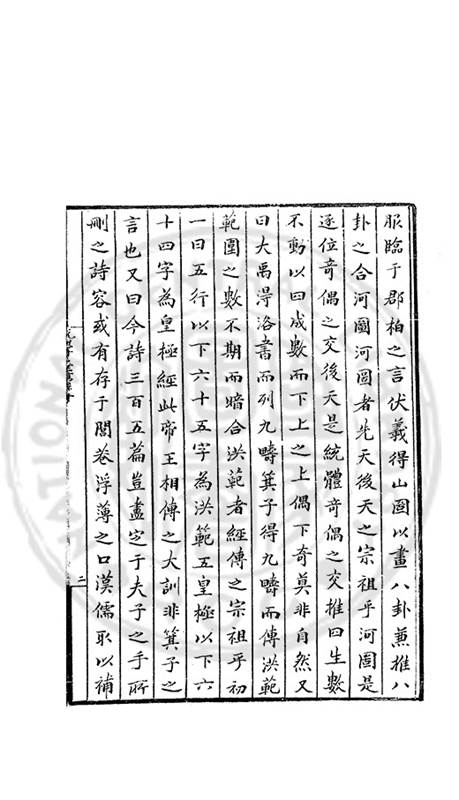 服臨于郡柏之言伏羲得山圖以畫八卦兼推八
卦之合河圖河圖者先天後天之宗祖乎河圖是
逐位竒偶之交後天是統體竒偶之交推曰生數
不動以曰成數而下上之上偶下竒莫非自然又
曰大禹得洛書而列九疇箕子得九疇而傳洪範
範圍之數不期而暗合洪範者經傳之宗祖乎初
一曰五行以下六十五字為洪範五皇極以下六
十四字為皇極經此帝王相傳之大訓非箕子之
言也又曰今詩三百五篇豈盡定于夫子之手所
刪之詩容或有存于閭巷浮薄之口漢儒取以補
二